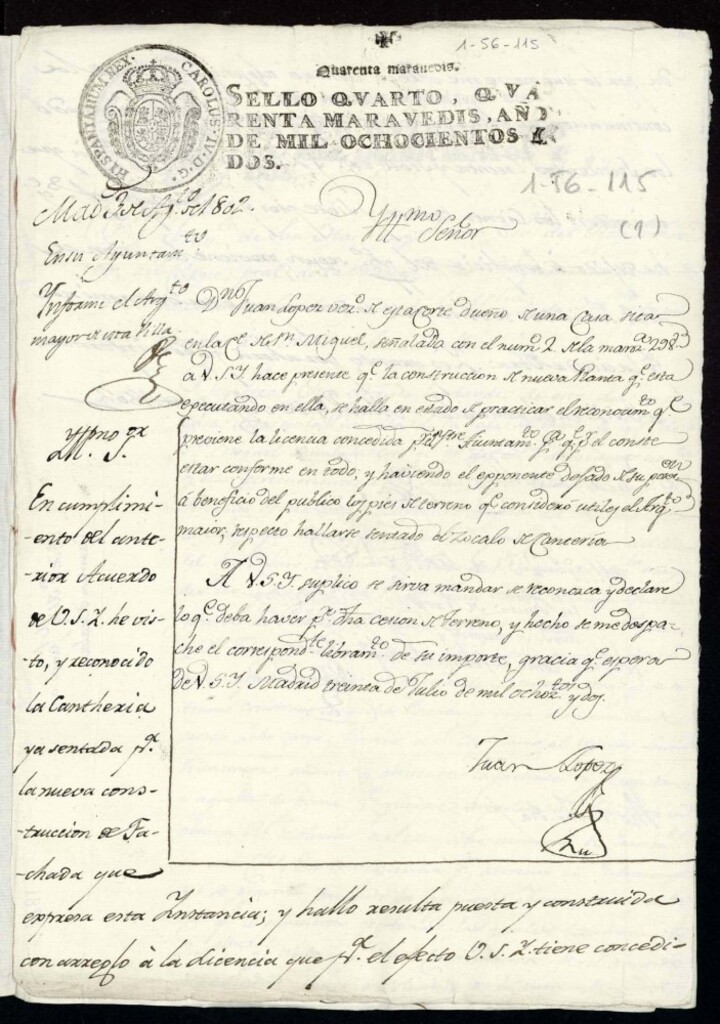 1-56-115
Quarenta maravedis.
SELLO QVARTO, QVA
RENTA MARAVEDIS, AÑO
DE MIL OCHOCIENTOS Y
DOS.
HISPANIARUM REX. CAROLUS. IV. D. G.
1-56-115
(1)
Mad. 3 de Ag.to de 1802.
En su Ayuntam.to
Informe el Arq.to
mayor de esta Villa
Yllmo Señor
Dn. Juan Lopez vez.o de esta Corte dueño de una Casa sita
en la C.e de Sn. Miguel, señalada con el num.o 2. de la manz.a 298.
a V.S.Y. hace presente q.e la construccion de nueva Planta q.e esta
egecutando en ella, se halla en estado de practicar el reconocim.to q.e
previene la licencia concedida Ayuntam.to conste
estar conforme en todo; y haviendo el exponente dejado de su
á beneficio del publico los pies de terreno q.e consideró utiles el Arq.to
maior, respecto hallarse sentado el Zocalo de Canteria
A V.S.Y. suplico se sirva mandar se reconozca y declare
lo q.e deba haver p.r dha cesion de terreno, y hecho se me despa-
che el correspond.te libram.to de su importe, gracia q.e espera
de V.S.Y. Madrid treinta de Julio de mil ochoz.tos y dos.
Juan Lopez
Yllmo Sor
En cumplimi-
ento del ante-
rior Acuerdo
de V.S.Y. he vis-
to, y reconocido
la Cantheria
ya sentada p.a
la nueva cons-
truccion de Fa-
chada que
expresa esta Instancia; y hallo resulta puesta y construida
con arreglo à la licencia que p.a el efecto V.S.Y. tiene concedi-